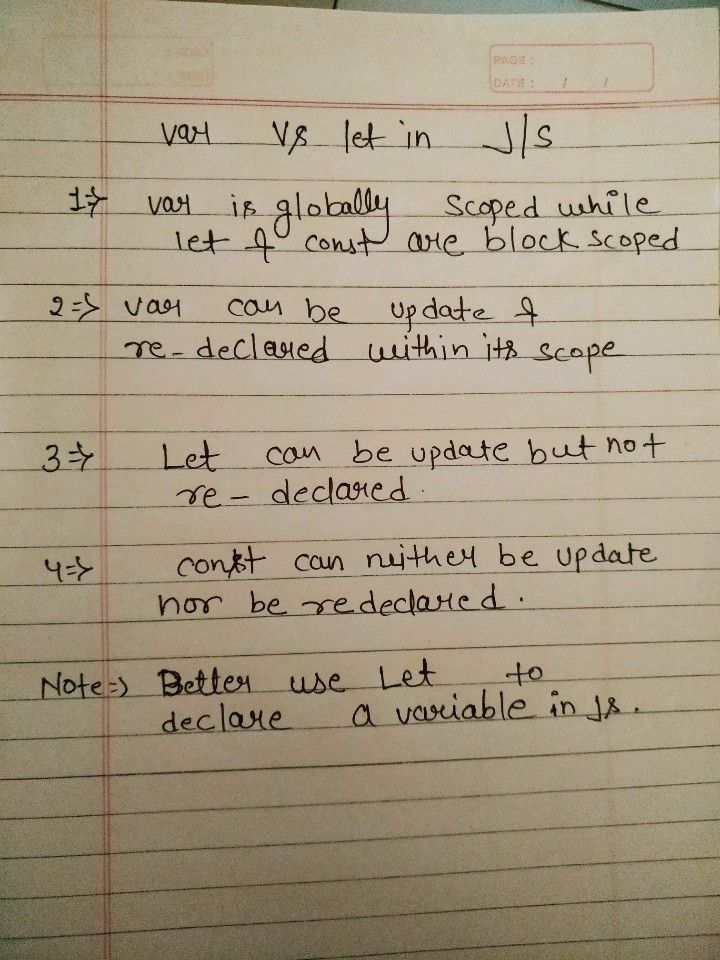 PAGE :
DATE : / /
var vs let in J/S
1=> var is globally scoped while
let & const are block scoped
2=> var can be update &
re-declared within its scope
3=> Let can be update but not
re-declared.
4=> const can neither be update
nor be redeclared.
Note=> Better use Let to
declare a variable in Js.